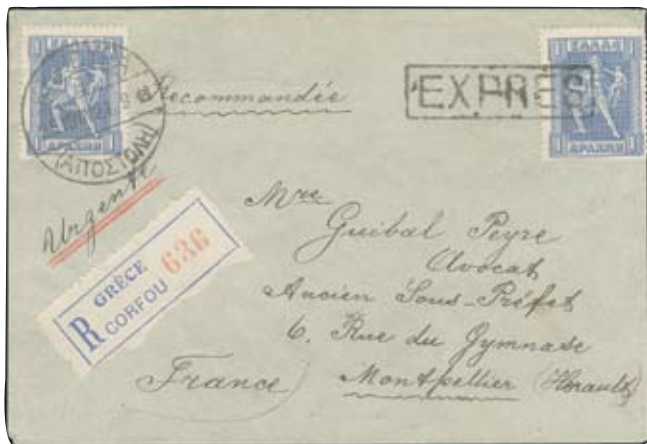 ΕΛΛΑΣ
1 ΔΡΑΧΜΗ 1
(ΑΠΟΣΤΟΛΗ)
Recommandée
EXPRES
ΕΛΛΑΣ
1 ΔΡΑΧΜΗ 1
Urgente
R GRÈCE CORFOU 636
Mre
Guibal Peyre
Avocat
Ancien Sous-Préfet
6. Rue du Gymnase
Montpellier (Herault)
France